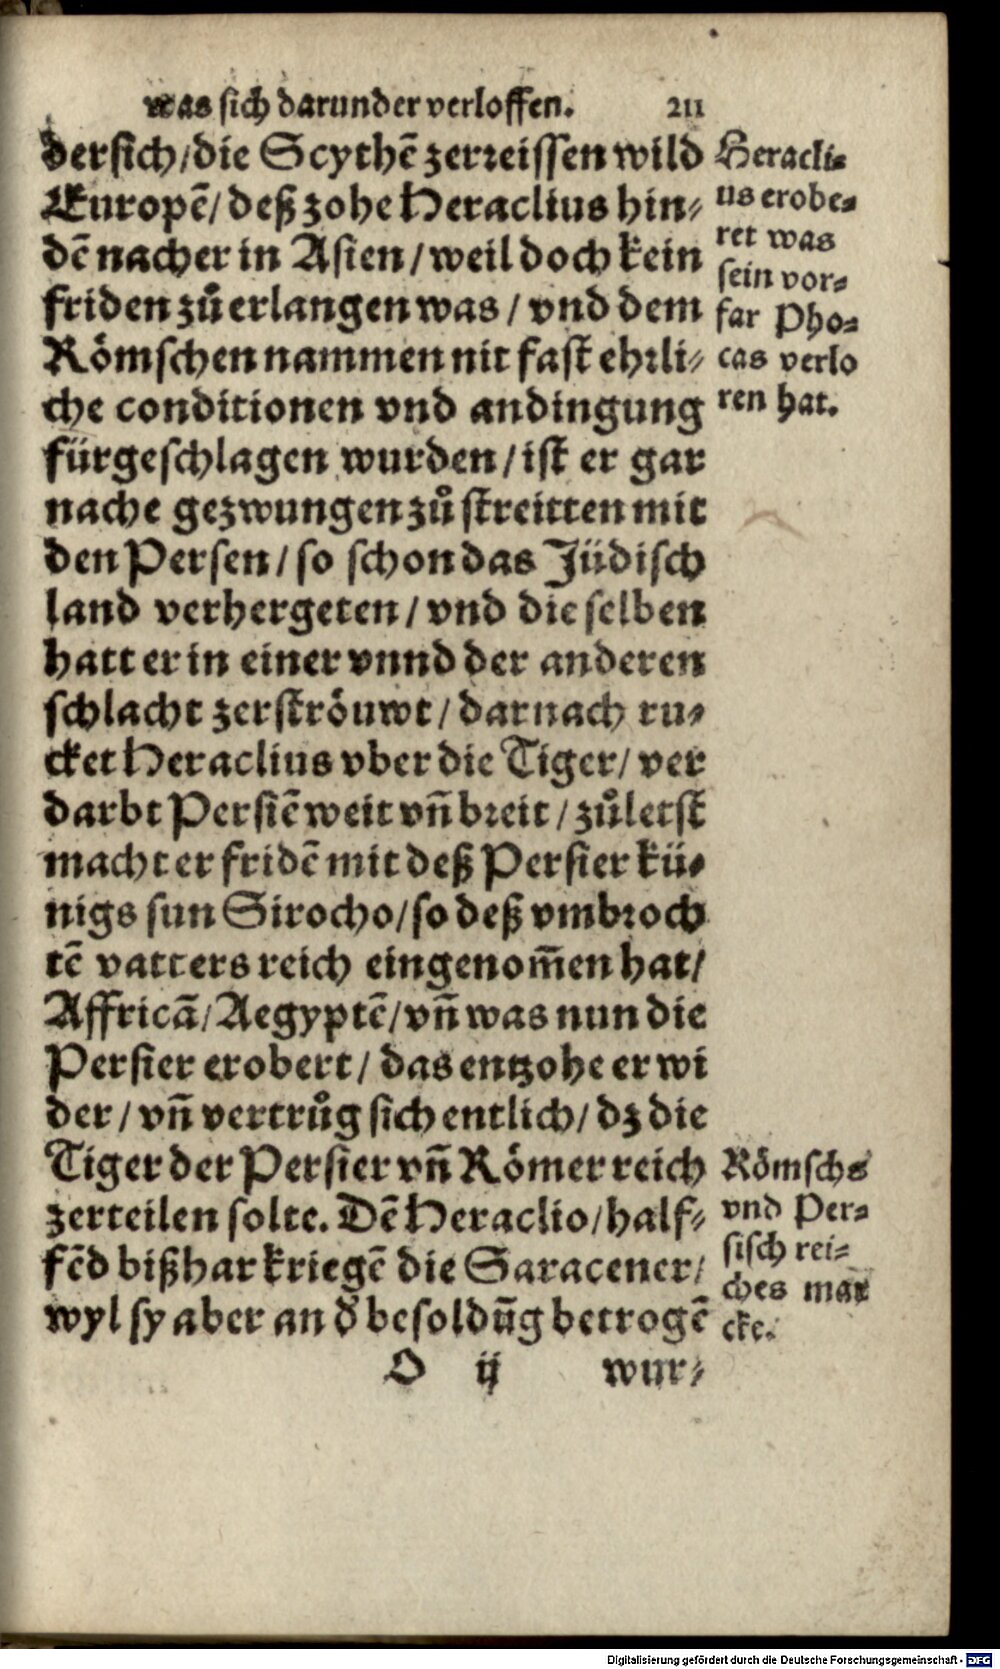 was sich darunder verloffen. 211
dersich/die Scythẽ zerreissen wild
Europẽ/deß zohe Heraclius hin⸗
dẽ nacher in Asien/weil doch kein
friden zů erlangen was/vnd dem
Römschen nammen nit fast ehrli⸗
che conditionen vnd andingung
fürgeschlagen wurden/ist er gar
nache gezwungen zů streitten mit
den Persen/so schon das Jüdisch
land verhergeten/vnd die selben
hatt er in einer vnnd der anderen
schlacht zerströuwt/darnach ru⸗
cket Heraclius vber die Tiger/ver
darbt Persiẽ weit vñ breit/zůletst
macht er fridẽ mit deß Persier kü⸗
nigs sun Sirocho/so deß vmbroch
tẽ vatters reich eingenom̃en hat/
Affricã/Aegyptẽ/vñ was nun die
Persier erobert/das entzohe er wi
der/vñ vertrůg sich entlich/dz die
Tiger der Persier vñ Römer reich
zerteilen solte. Dẽ Heraclio/half⸗
fẽd bißhar kriegẽ die Saracener/
wyl sy aber an d̕ besoldũg betrogẽ
O ij wur⸗
Heracli⸗
us erobe⸗
ret was
sein vor⸗
far Pho⸗
cas verlo
ren hat.
Römschs
vnd Per⸗
sisch rei⸗
ches mar
cke.
Digitalisierung gefördert durch die Deutsche Forschungsgemeinschaft - DFG